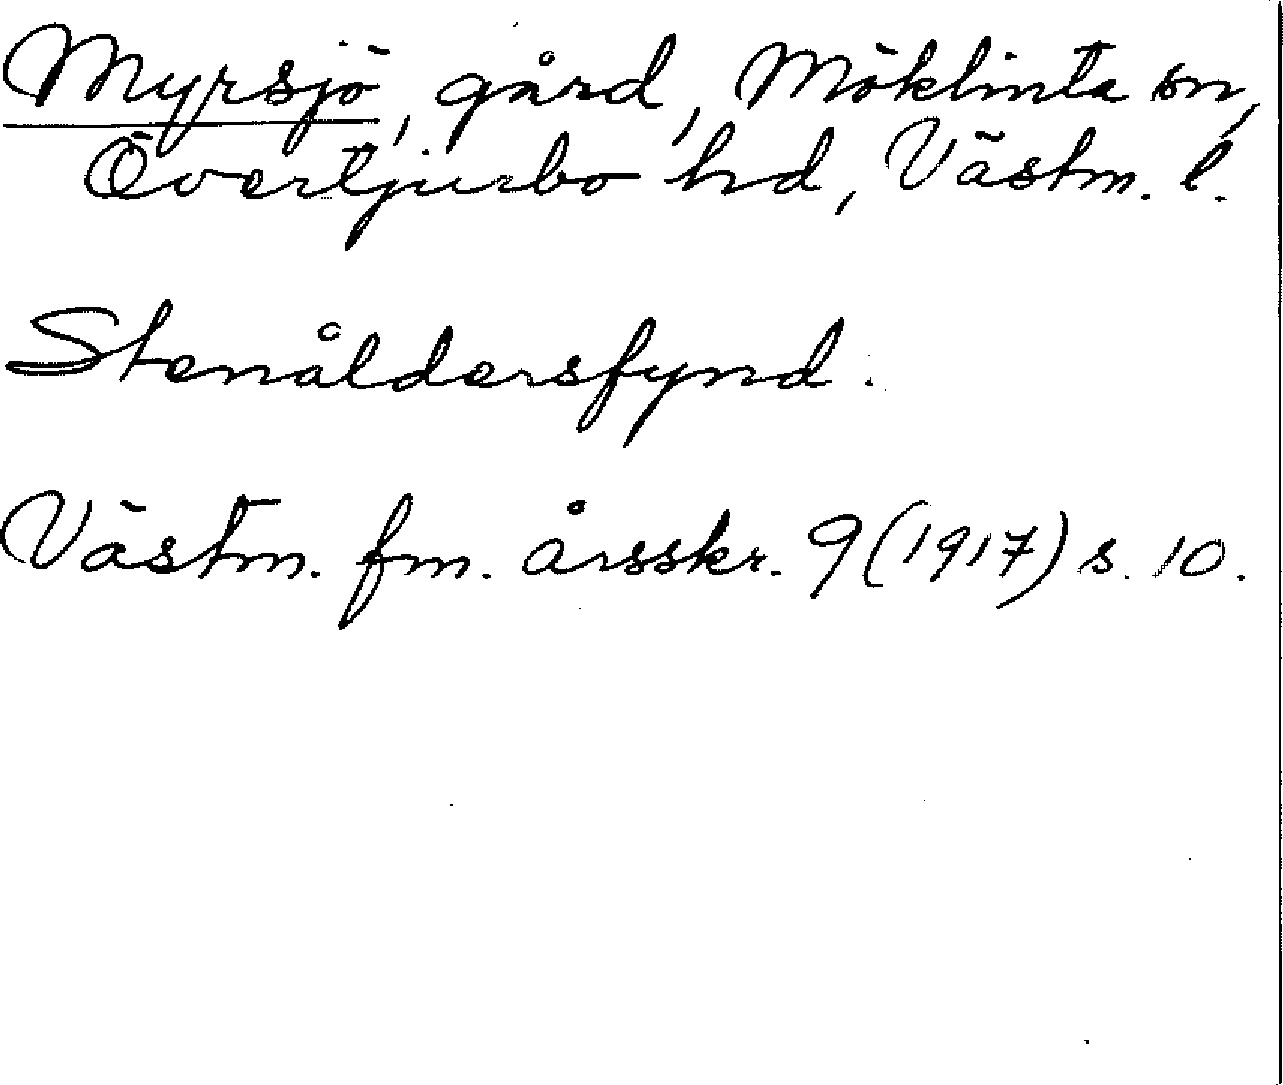 Myrsjö, gård, Möklinta sn,
Övertjurbo hd, Västm. l.
Stenåldersfynd.
Västm. fm. årsskr. 9 (1917) s. 10.